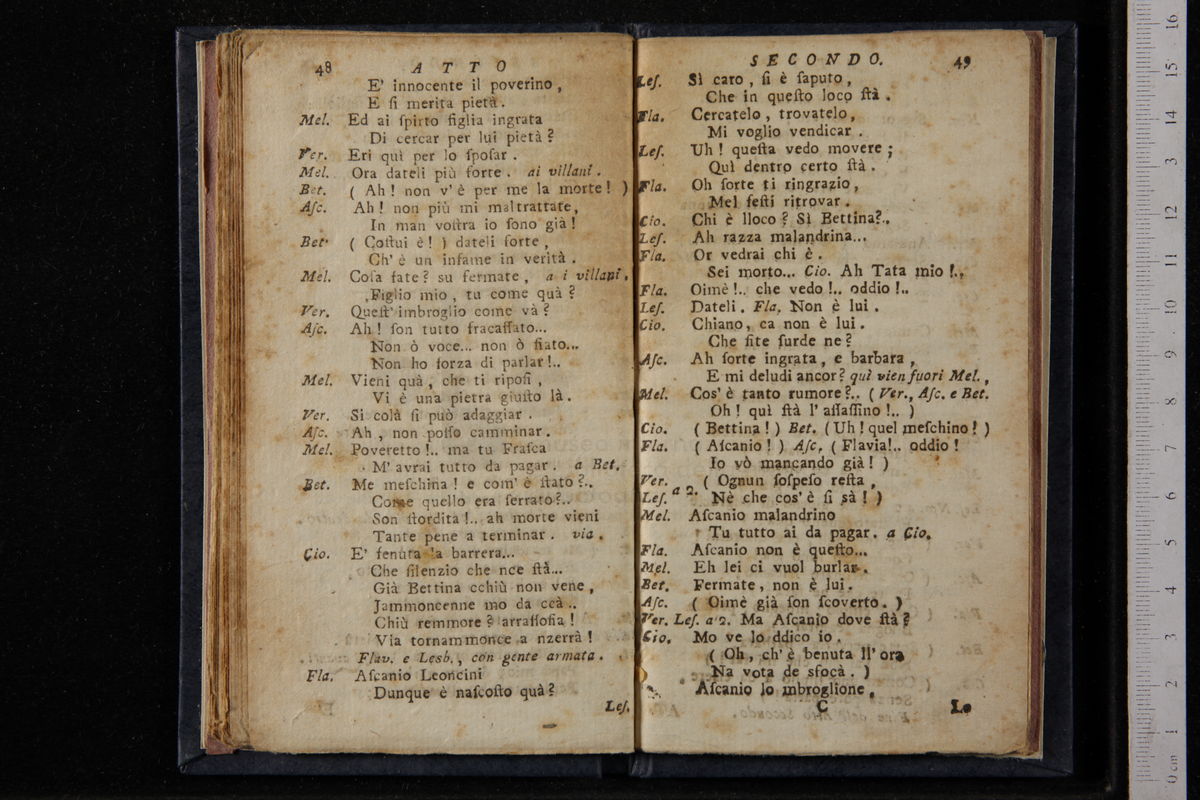 48 ATTO
E' innocente il poverino,
E ſi merita pietà.
Mel. Ed ai ſpirto figlia ingrata
Di cercar per lui pietà?
Ver. Eri quì per lo ſpoſar.
Mel. Ora dateli più forte. ai villani.
Bet. ( Ah! non v'è per me la morte! )
Aſc. Ah! non più mi maltrattate,
In man voſtra io ſono già!
Bet. ( Coſtui è! ) dateli forte,
Ch'è un infame in verità.
Mel. Coſa fate? su fermate, a i villani.
Figlio mio, tu come quà?
Ver. Queſt' imbroglio come và?
Aſc. Ah! ſon tutto fracaſſato...
Non ò voce... non ò fiato...
Non ho forza di parlar!..
Mel. Vieni quà, che ti ripoſi,
Vi è una pietra giuſto là.
Ver. Si colà ſi può adaggiar.
Aſc. Ah, non poſſo camminar.
Mel. Poveretto!.. ma tu Fraſca
M' avrai tutto da pagar. a Bet.
Bet. Me meſchina! e com' è ſtato?..
Come quello era ſerrato?..
Son ſtordita!.. ah morte vieni
Tante pene a terminar. via.
Cio. E' fenuta la barrera...
Che ſilenzio che nce ſtà...
Già Bettina cchiù non vene,
Jammoncenne mo da ccà..
Chiù remmore? arraſſoſia!
Via tornammonce a nzerrà!
Flav. e Lesb., con gente armata.
Fla. Aſcanio Leoncini
Dunque è naſcoſto quà?
Leſ.
SECONDO. 49
Leſ. Sì caro, ſi è ſaputo,
Che in queſto loco ſtà.
Fla. Cercatelo, trovatelo,
Mi voglio vendicar.
Leſ. Uh! queſta vedo movere;
Quì dentro certo ſtà.
Fla. Oh ſorte ti ringrazio,
Mel feſti ritrovar.
Cio. Chi è lloco? Sì Bettina?..
Leſ. Ah razza malandrina...
Fla. Or vedrai chi è.
Sei morto... Cio. Ah Tata mio!..
Fla. Oimè!.. che vedo!.. oddio!..
Leſ. Dateli. Fla. Non è lui.
Cio. Chiano, ca non è lui.
Che ſite ſurde ne?
Aſc. Ah ſorte ingrata, e barbara,
E mi deludi ancor? quì vien fuori Mel.,
Mel. Cos' è tanto rumore?.. ( Ver., Aſc. e Bet.
Oh! quì ſtà l' aſſaſſino!.. )
Cio. ( Bettina! ) Bet. ( Uh! quel meſchino! )
Fla. ( Aſcanio! ) Aſc. ( Flavia!.. oddio!
Io vò mancando già! )
Ver. ( Ognun ſoſpeſo reſta,
Leſ. a 2. Nè che cos' è ſi sà! )
Mel. Aſcanio malandrino
Tu tutto ai da pagar. a Cio.
Fla. Aſcanio non è queſto...
Mel. Eh lei ci vuol burlar.
Bet. Fermate, non è lui.
Aſc. ( Oimè già ſon ſcoverto. )
Ver. Leſ. a 2. Ma Aſcanio dove ſtà?
Cio. Mo ve lo ddico io.
( Oh, ch' è benuta ll' ora
Na vota de sfocà. )
Aſcanio lo mbroglione,
C Lo